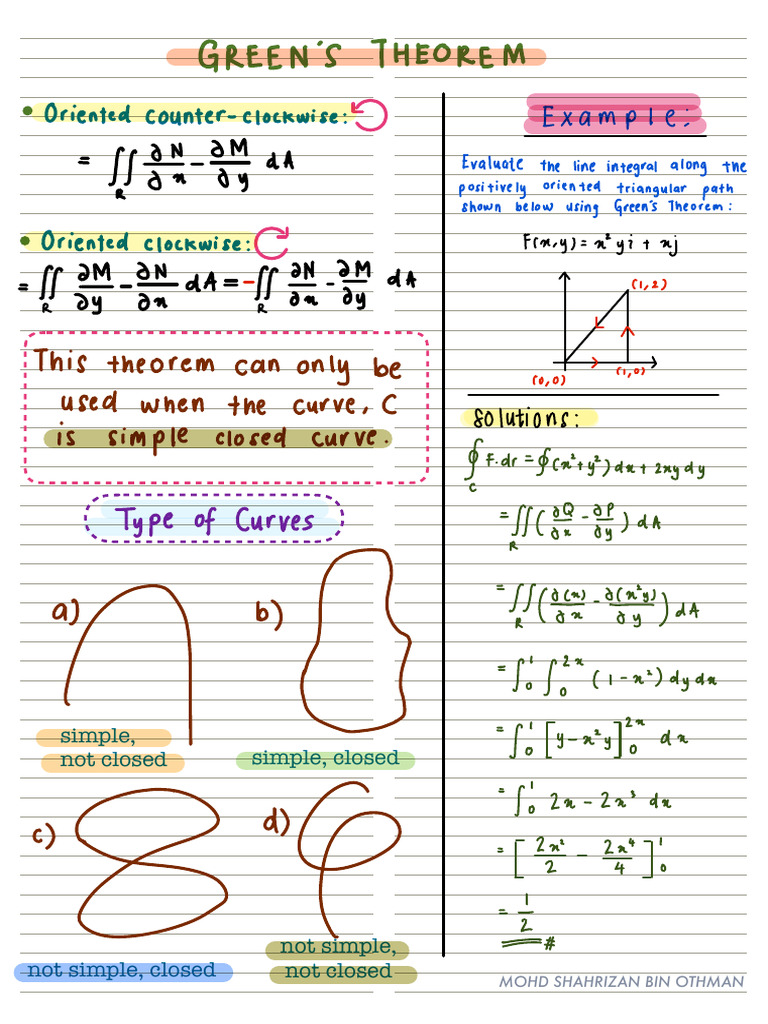 GREEN'S THEOREM
• Oriented counter-clockwise:
= ∬_R ∂N/∂x - ∂M/∂y dA
• Oriented clockwise:
= ∬_R ∂M/∂y - ∂N/∂x dA = -∬_R ∂N/∂x - ∂M/∂y dA
This theorem can only be
used when the curve, C
is simple closed curve.
Type of Curves
a)
b)
simple,
not closed
simple, closed
c)
d)
not simple, closed
not simple,
not closed
Example:
Evaluate the line integral along the
positively oriented triangular path
shown below using Green's Theorem:
F(x,y) = x²yi + xj
(1,2)
(0,0)
(1,0)
Solutions:
∮_C F.dr = ∮(x²+y²)dx + 2xy dy
= ∬_R (∂Q/∂x - ∂P/∂y) dA
= ∬_R (∂(x)/∂x - ∂(x²y)/∂y) dA
= ∫₀¹ ∫₀²ˣ (1-x²) dy dx
= ∫₀¹ [y-x²y]₀²ˣ dx
= ∫₀¹ 2x - 2x³ dx
= [2x²/2 - 2x⁴/4]₀¹
= 1/2 #
MOHD SHAHRIZAN BIN OTHMAN